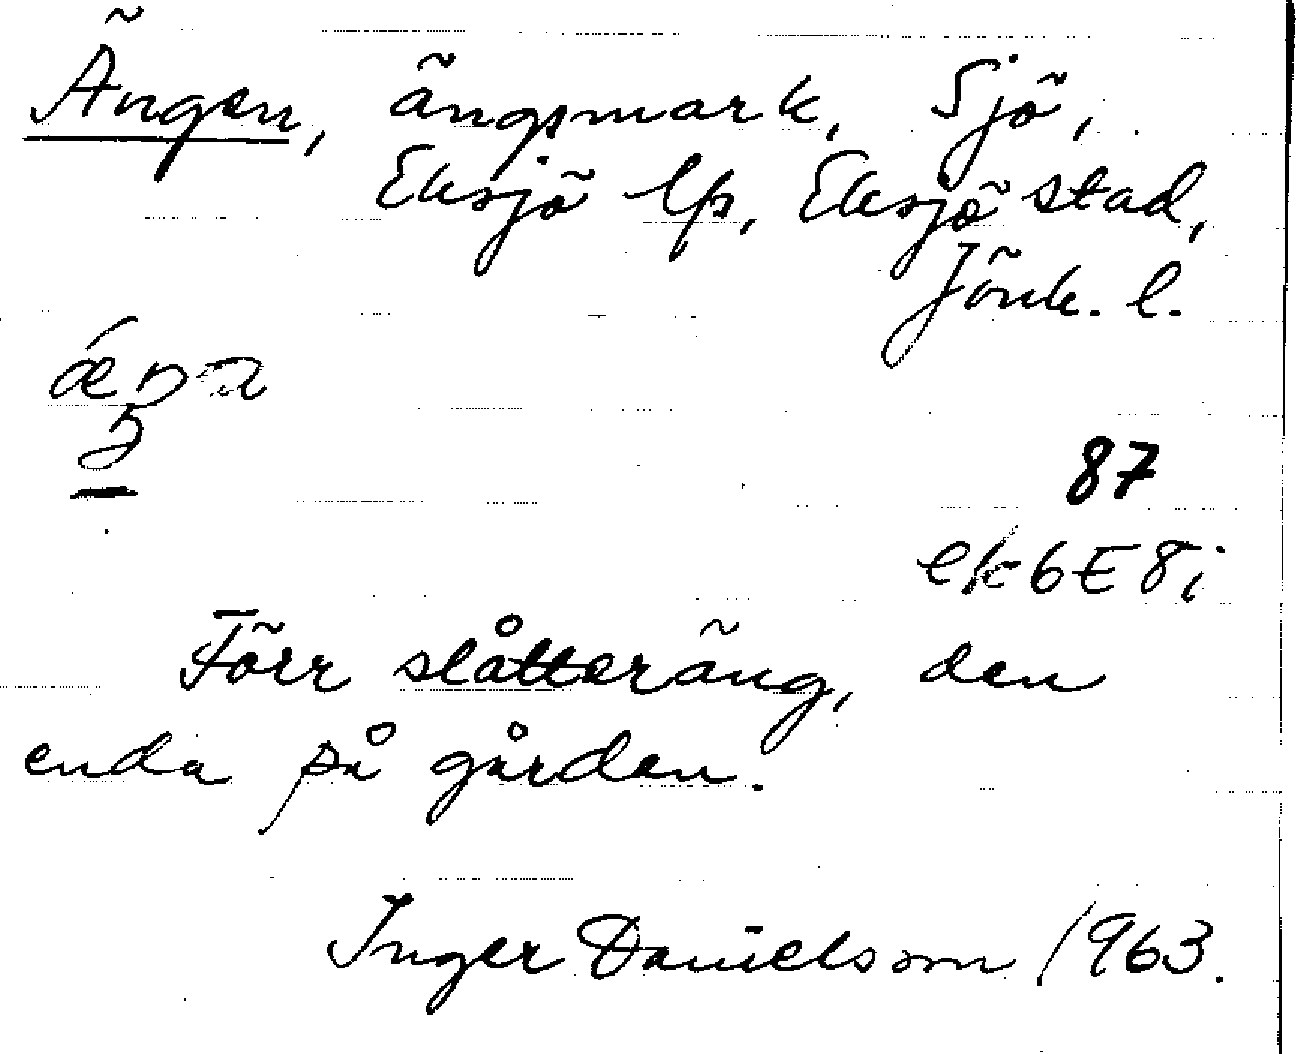 Ängen, ängsmark, Sjö,
Eksjö lp, Eksjö stad,
Jönk. l.
87
ek6E8i
Förr slåtteräng, den
enda på gården.
Inger Danielsson 1963.